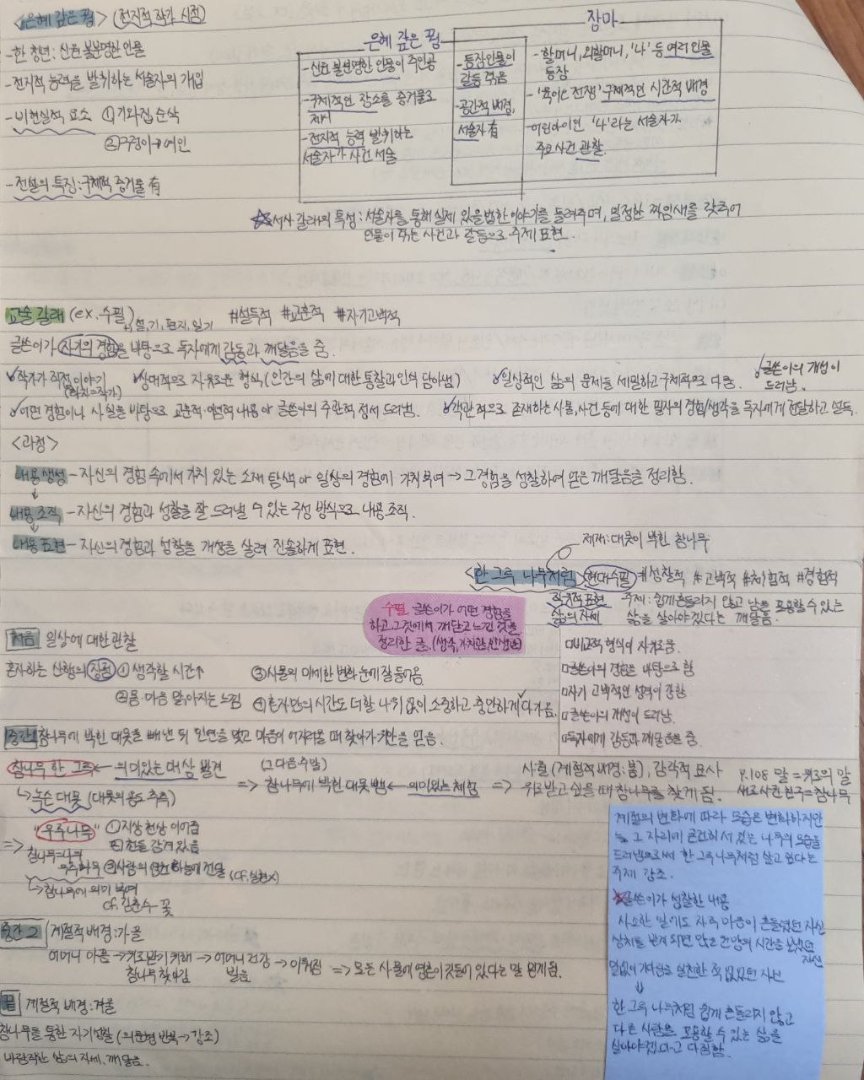 <은혜 갚은 꿩> (전지적 작가 시점)
- 한 청년 : 신원 불분명한 인물
- 전지적 능력을 발휘하는 서술자의 개입
- 비현실적 요소 ① 기와집 순식
② 구렁이→여인
- 전설의 특징 : 구체적 증거물 有
은혜 갚은 꿩
- 신원 불분명한 인물이 주인공
- 구체적인 장소를 증거물로
제시
- 전지적 능력 발휘하는
서술자가 사건 서술
- 등장인물이
갈등 겪음
- 공간적 배경,
서술자 有
장마
- 할머니, 외할머니, '나' 등 여러 인물
등장
- '육이오 전쟁' 구체적인 시간적 배경
- 어린아이인 '나'라는 서술자가
주요사건 관찰.
☆서사 갈래의 특성 : 서술자를 통해 실제 있을 법한 이야기를 들려주며, 일정한 짜임새를 갖추어
인물이 겪는 사건과 갈등으로 주제 표현.
교술 갈래 (ex. 수필) 설, 기, 편지, 일기 #설득적 #교훈적 #자기고백적
글쓴이가 자기의 경험을 바탕으로 독자에게 감동과 깨달음을 줌.
✓작가가 직접 이야기 ✓상대적으로 자유로운 형식 (인간의 삶에 대한 통찰과 인식 담아냄) ✓일상적인 삶의 문제를 세밀하고 구체적으로 다룸. ✓글쓴이의 개성이
드러남.
✓어떤 경험이나 사실을 바탕으로 교훈적·이념적 내용 or 글쓴이의 주관적 정서 드러냄. ✓객관적으로 존재하는 사물, 사건 등에 대한 필자의 경험/생각을 독자에게 전달하고 설득.
<과정>
내용 생성 - 자신의 경험 속에서 가치 있는 소재 탐색 or 일상의 경험에 가치 부여 → 그 경험을 성찰하여 얻은 깨달음을 정리함.
↓
내용 조직 - 자신의 경험과 성찰을 잘 드러낼 수 있는 구성 방식으로 내용 조직.
↓
내용 표현 - 자신의 경험과 성찰을 개성을 살려 진솔하게 표현.
제재 : 대못이 박힌 참나무
<한 그루 나무처럼> (현대수필) #성찰적 #고백적 #체험적 #경험적
직유적 표현
삶의 자세
주제 : 쉽게 흔들리지 않고 남을 포용할 수 있는
삶을 살아야겠다는 깨달음.
수필 글쓴이가 어떤 경험을
하고 그것에서 깨닫고 느낀 것을
정리한 글. (성격, 가치관, 인생관)
□비교적 형식이 자유로움.
□글쓴이의 경험을 바탕으로 함
□자기 고백적인 성격이 강함
□글쓴이의 개성이 드러남.
□독자에게 감동과 깨달음을 줌.
처음 일상에 대한 관찰
혼자하는 산행의 장점 ① 생각할 시간↑ ③ 사물의 미세한 변화 눈에 잘 들어옴
② 몸 마음 맑아지는 느낌 ④ 혼자만의 시간도 더할 나위 없이 소중하고 충만하게 다가옴.
중간1 참나무에 박힌 대못을 빼낸 뒤 인연을 맺고 마음이 어지러울 때 찾아가 위안을 얻음.
참나무 한 그루 ← 의미있는 대상 발견
↳ 녹슨 대못 (대못의 용도 추측)
(그 다음 주말)
=> 참나무에 박힌 대못 뺌 ← 의미있는 체험
사철 (계절적 배경 : 봄), 감각적 묘사
=> 위로받고 싶을 때 참나무를 찾게 됨.
p.108 말 = 위로의 말
새로 사귄 친구 = 참나무
"우주나무" ① 지상 천상 이어줌
② 혼들 잠겨 있음
=> 참나무=나의
우주나무 ③ 사람의 염원 하늘에 전달
↳ 참나무에 의미 부여
cf. 김춘수-꽃
중간 2 계절적 배경 : 가을
어머니 아픔 → 위로받기 위해 → 어머니 건강 → 이뤄짐 => 모든 사물에 영혼이 깃들어 있다는 말 믿게 됨.
참나무 찾아감 빌음
끝 계절적 배경 : 겨울
참나무를 통한 자기성찰 (의문형 반복 → 강조)
바람직한 삶의 자세, 깨달음.
계절의 변화에 따라 모습은 변화하지만
늘 그 자리에 굳건히 서 있는 나무의 모습을
드러냄으로써 한 그루 나무처럼 살고 싶다는
주제 강조.
★글쓴이가 성찰한 내용
사소한 일에도 자주 마음이 흔들렸던 자신
상처를 받게 되면 안으로
↓
한 그루 나무처럼 쉽게 흔들리지 않고
다른 사람을 포용할 수 있는 삶을
살아야겠다고 다짐함.